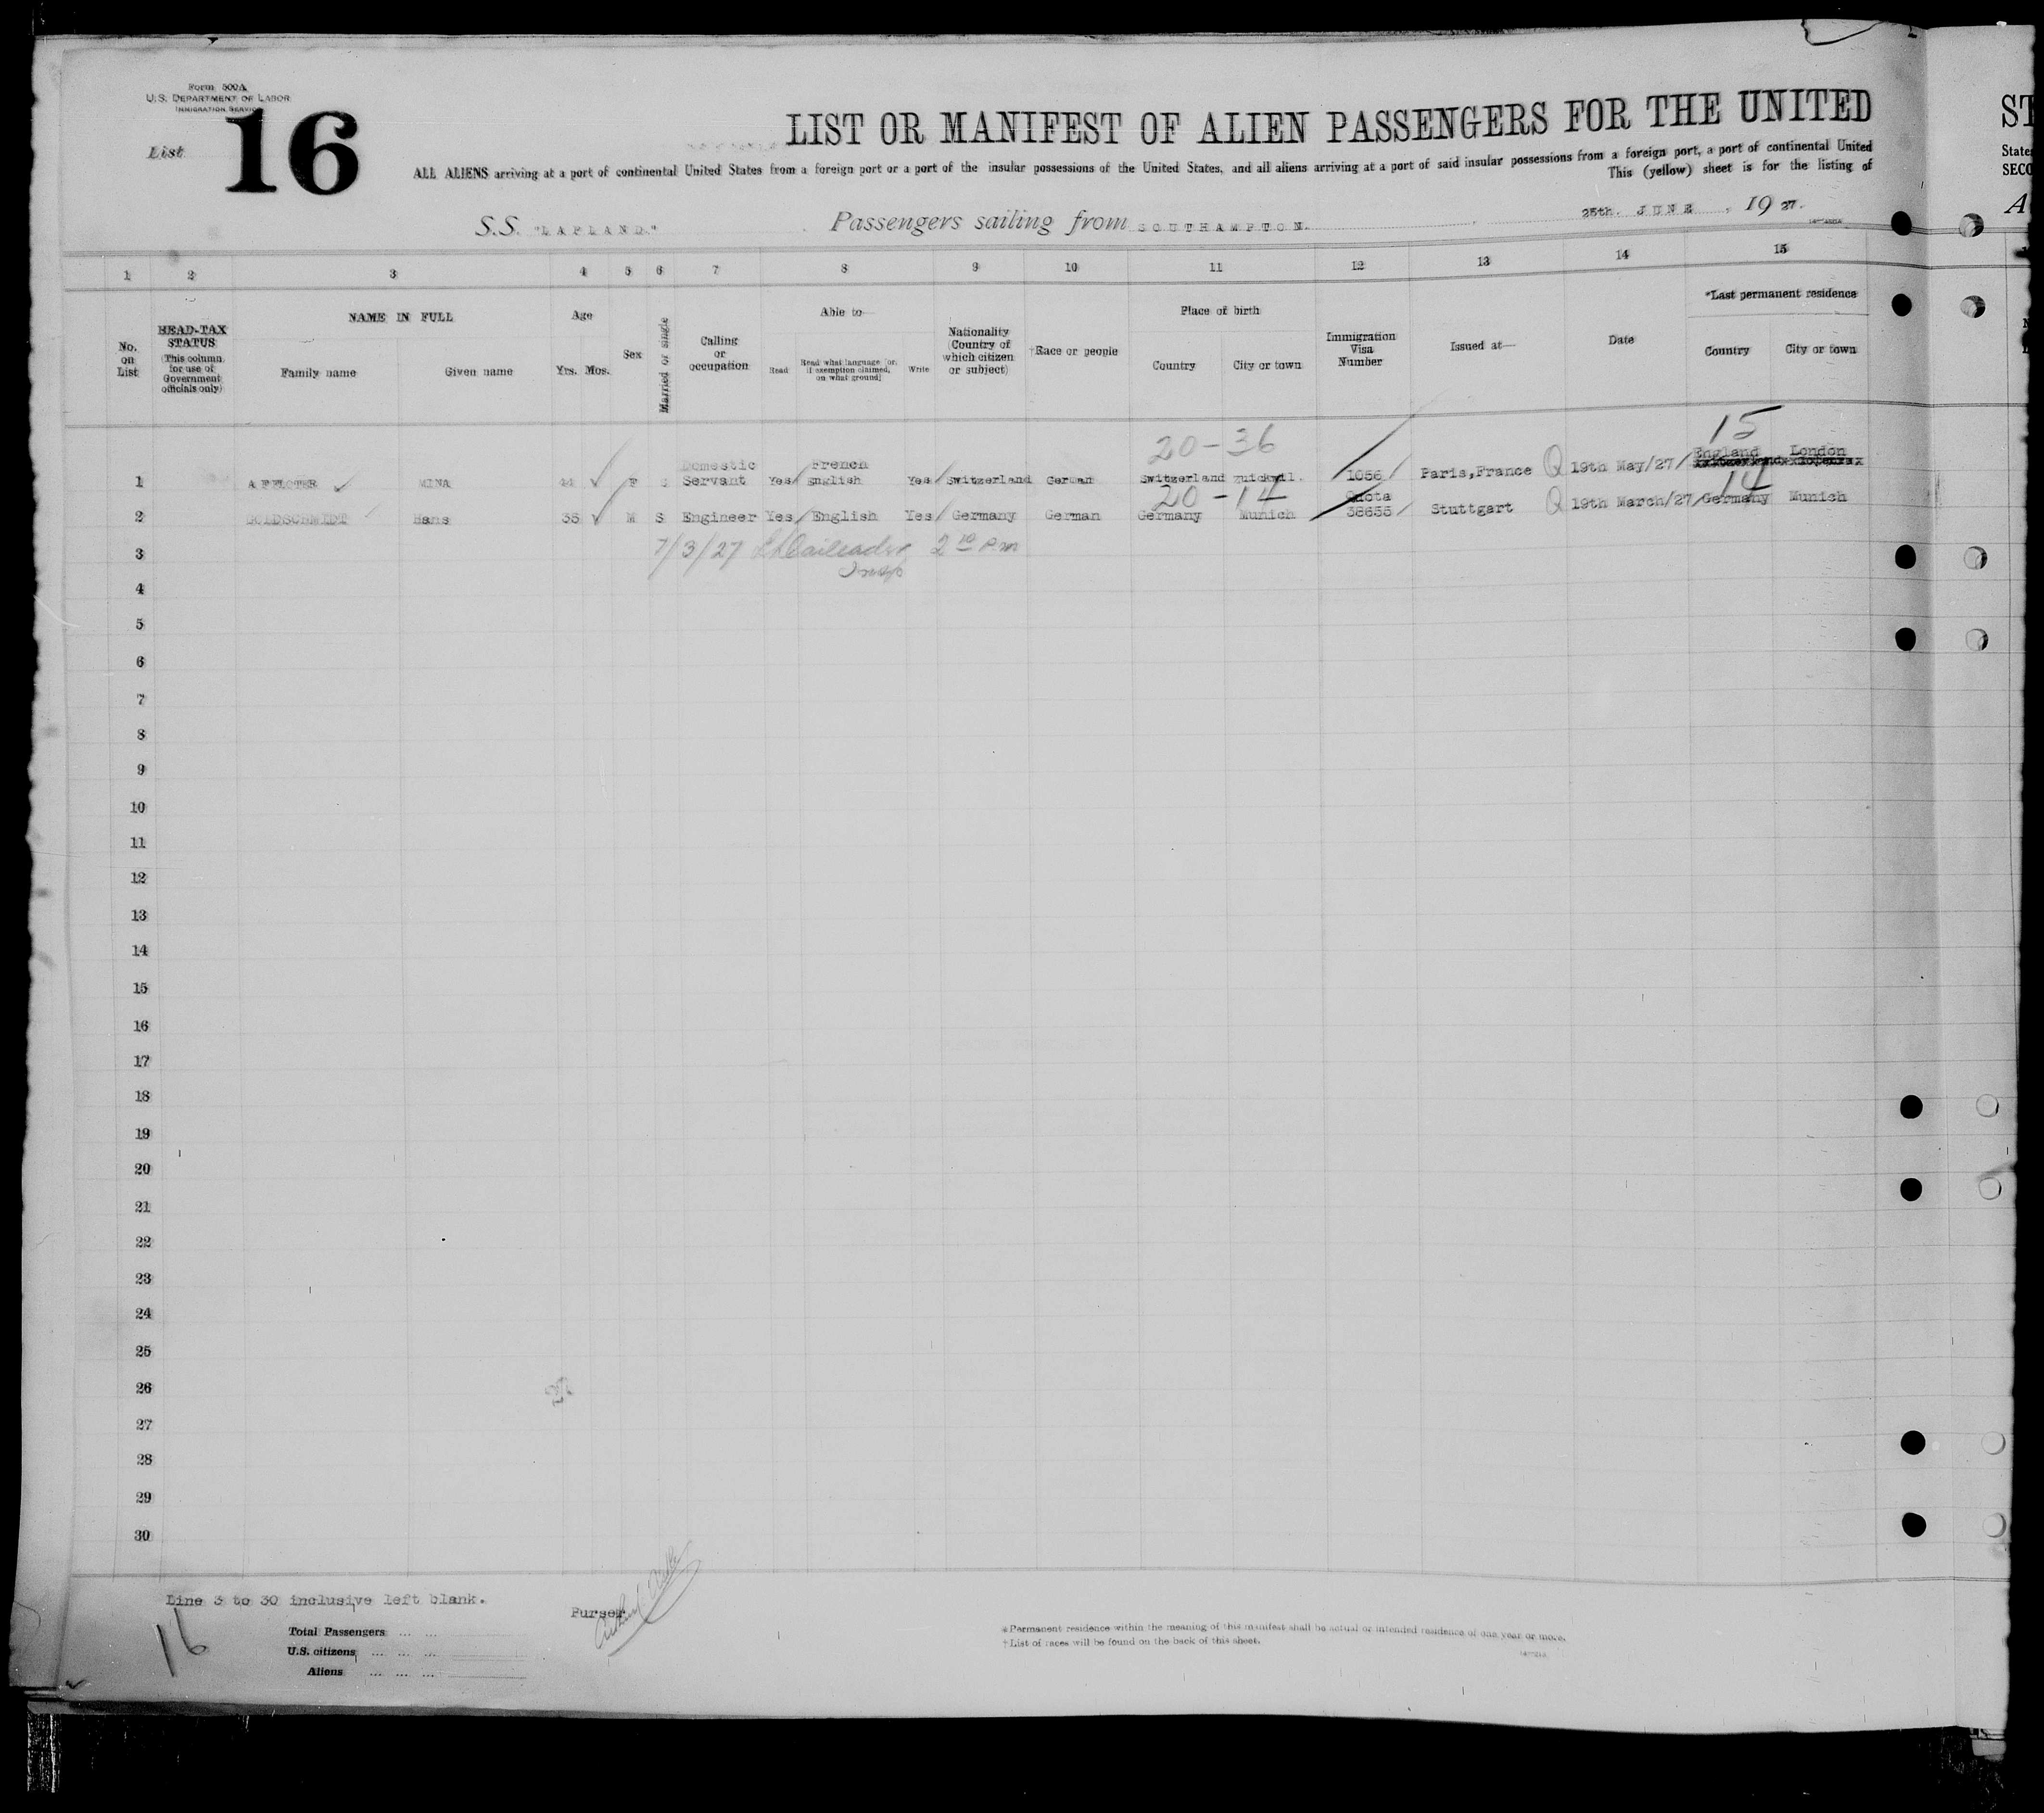 Form 500A
U.S. DEPARTMENT OF LABOR
IMMIGRATION SERVICE
List 16
LIST OR MANIFEST OF ALIEN PASSENGERS FOR THE UNITED
ST
ALL ALIENS arriving at a port of continental United States from a foreign port or a port of the insular possessions of the United States, and all aliens arriving at a port of said insular possessions from a foreign port, a port of continental United
State
This (yellow) sheet is for the listing of
SECO
S.S. "LAPLAND." Passengers sailing from SOUTHAMPTON. 25th. JUNE, 1927.
A
1 2 3 4 5 6 7 8 9 10 11 12 13 14 15
No. on List
HEAD-TAX STATUS
(This column for use of Government officials only)
NAME IN FULL
Family name Given name
Age
Yrs. Mos.
Sex
Married or single
Calling or occupation
Able to—
Read Read what language [or, if exemption claimed, on what ground] Write
Nationality (Country of which citizen or subject)
†Race or people
Place of birth
Country City or town
Immigration Visa Number
Issued at—
Date
*Last permanent residence
Country City or town
20-36 15
1 MINA F S Domestic Servant Yes French English Yes Switzerland German Switzerland 1056 Paris,France Q 19th May/27 England London
20-14 14
2 GOLDSCHMIDT Hans 35 M S Engineer Yes English Yes Germany German Germany Munich Quota 38655 Stuttgart Q 19th March/27 Germany Munich
3 7/3/27 2 10 P.m
Insp
4
5
6
7
8
9
10
11
12
13
14
15
16
17
18
19
20
21
22
23
24
25
26
27
28
29
30
Line 3 to 30 inclusive left blank.
Purser
16
Total Passengers ... ...
U.S. citizens ... ... ...
Aliens ... ... ...
*Permanent residence within the meaning of this manifest shall be actual or intended residence of one year or more.
†List of races will be found on the back of this sheet.